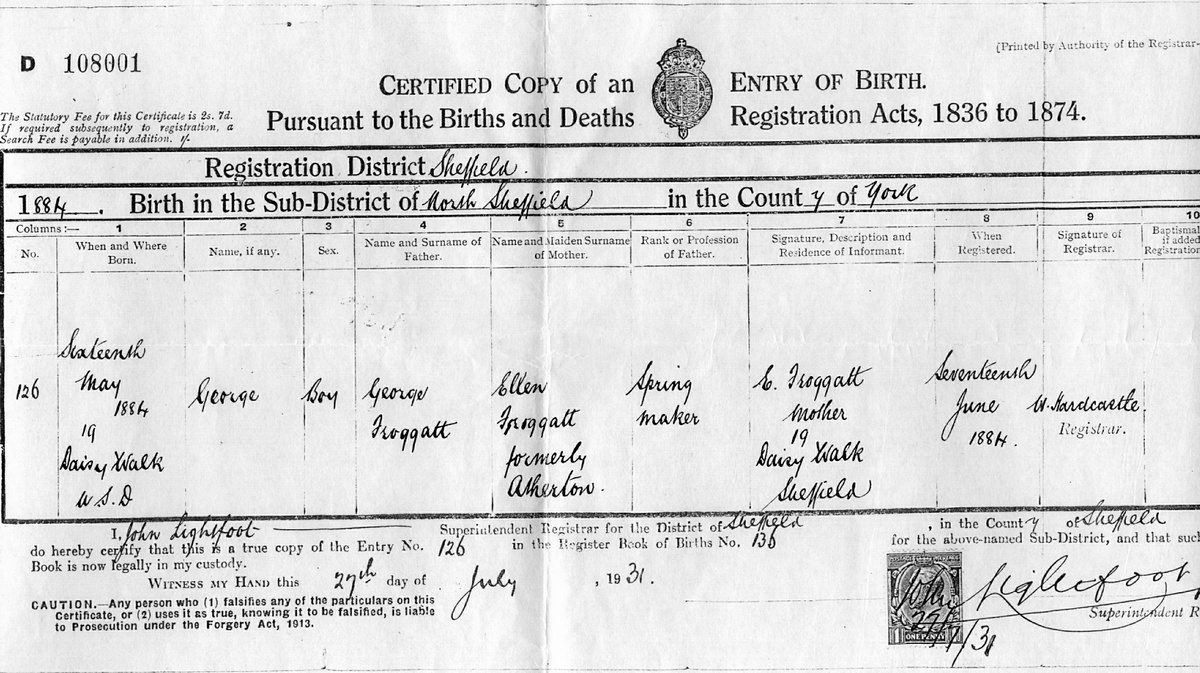 D 108001
[Printed by Authority of the Registrar-
CERTIFIED COPY of an ENTRY OF BIRTH.
Pursuant to the Births and Deaths Registration Acts, 1836 to 1874.
The Statutory Fee for this Certificate is 2s. 7d.
If required subsequently to registration, a
Search Fee is payable in addition.
Registration District Sheffield.
1884. Birth in the Sub-District of North Sheffield in the County of York
Columns:— 1 2 3 4 5 6 7 8 9 10
No.
When and Where
Born.
Name, if any.
Sex.
Name and Surname of
Father.
Name and Maiden Surname
of Mother.
Rank or Profession
of Father.
Signature, Description and
Residence of Informant.
When
Registered.
Signature of
Registrar.
Baptismal
if added
Registration
126
Sixteenth
May
1884
19
Daisy Walk
U.S.D
George
Boy
George
Froggatt
Ellen
Froggatt
formerly
Atherton.
Spring
maker
E. Froggatt
Mother
19
Daisy Walk
Sheffield
Seventeenth
June
1884.
W. Hardcastle
Registrar.
I, John Lightfoot Superintendent Registrar for the District of Sheffield, in the County of Sheffield
do hereby certify that this is a true copy of the Entry No. 126 in the Register Book of Births No. 136 for the above-named Sub-District, and that such
Book is now legally in my custody.
WITNESS MY HAND this 27th day of July, 1931.
CAUTION.—Any person who (1) falsifies any of the particulars on this
Certificate, or (2) uses it as true, knowing it to be falsified, is liable
to Prosecution under the Forgery Act, 1913.
John Lightfoot
Superintendent R
ONE PENNY
27/7/31